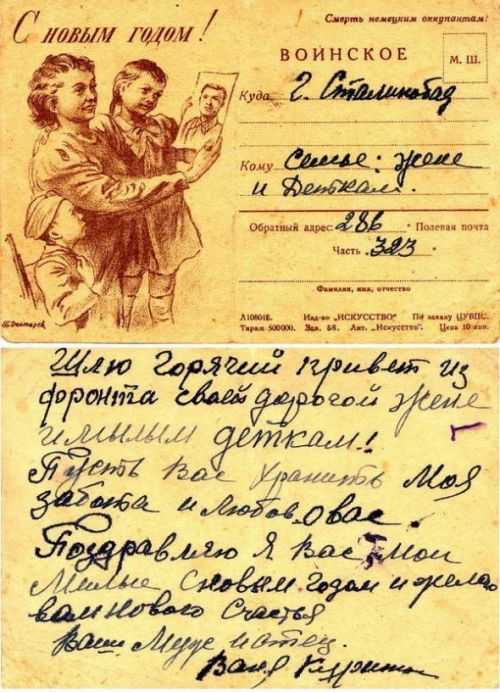 С новым годом!
Смерть немецким оккупантам!
ВОИНСКОЕ
М. Ш.
Куда г. Сталинобад
Кому Семье: жене
и Деткам.
Обратный адрес: 286 Полевая почта
Часть 323
Фамилия, имя, отчество
Л108018. Изд-во „ИСКУССТВО" По заказу ЦУВПС.
Тираж 500000. Зак. 58. Лит. „Искусство". Цена 10 коп.
Шлю Горячий привет из
фронта своей дорогой жене
и милым деткам!
Пусть Вас хранить Моя
забота и любов о вас.
Поздравляю я Вас Мои
Милые с новым годом и желаю
вам нового счастья
Ваш Муж и отец
Ваня